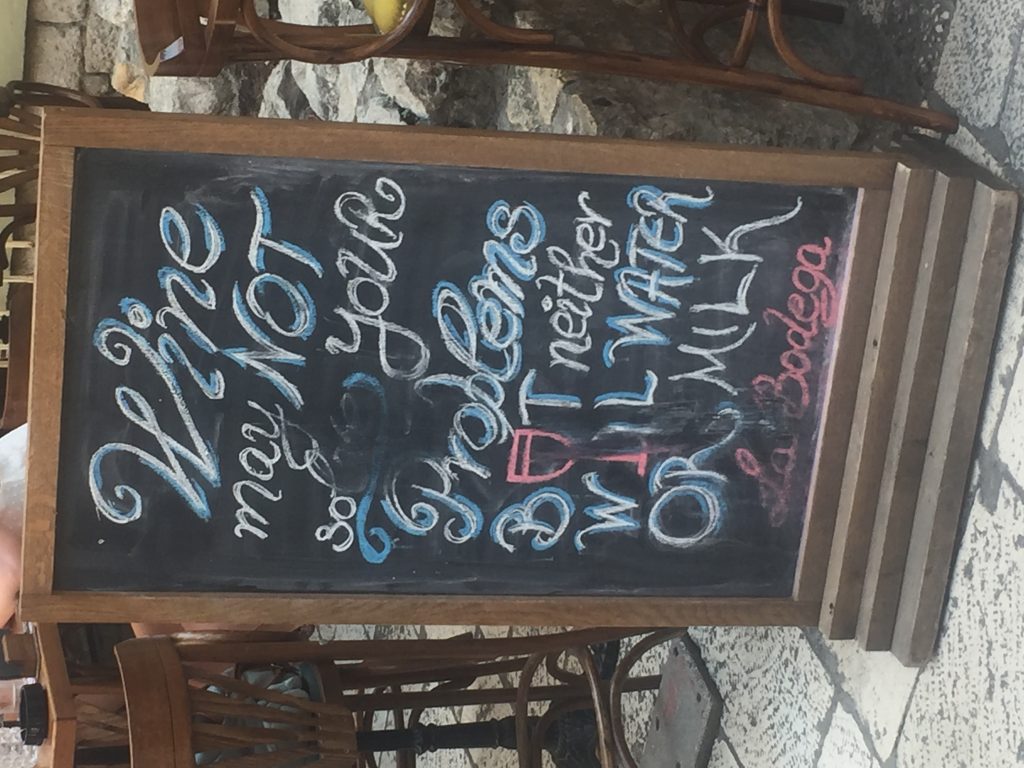 Wine
may NOT
solve your
problems
BUT neither
WILL WATER
OR MILK
La Bodega